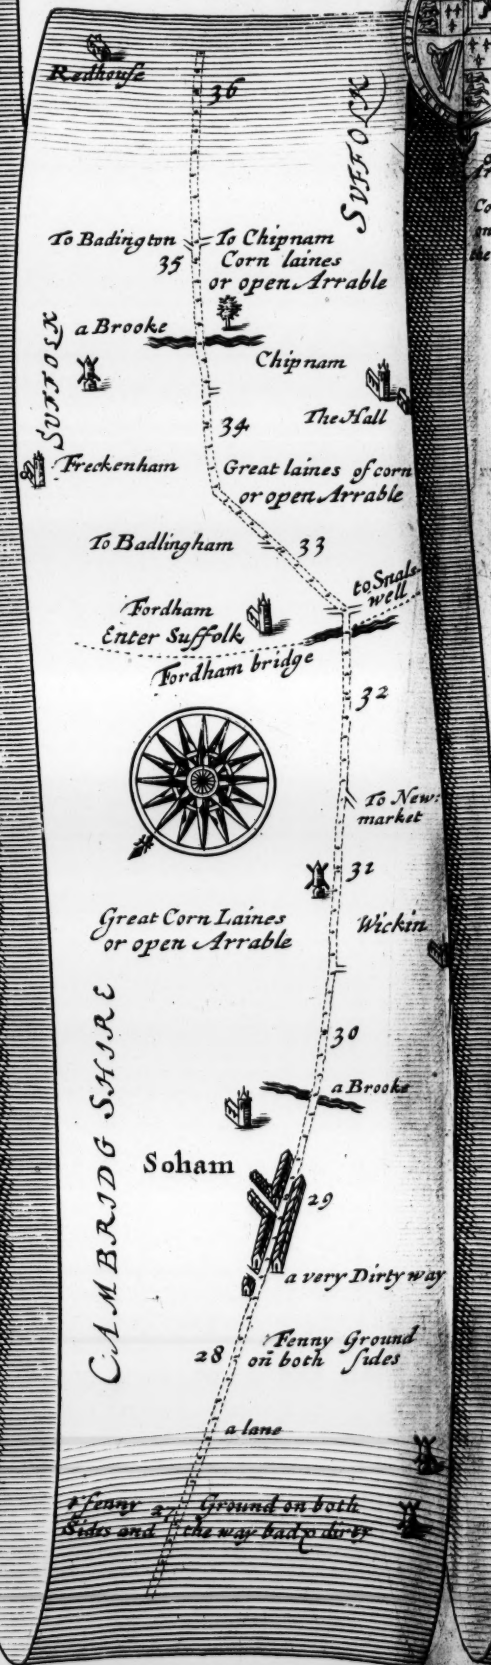 Redhouse
36
SUFFOLK
To Badington
To Chipnam
35
Corn laines
or open Arrable
a Brooke
SUFFOLK
Chipnam
The Hall
34
Freckenham
Great laines of corn
or open Arrable
To Badlingham
33
to Snals
well
Fordham
Enter Suffolk
Fordham bridge
32
To New:
market
31
Great Corn Laines
or open Arrable
Wickin
30
CAMBRIDG SHIRE
a Brooke
Soham
29
a very Dirty way
28
Fenny Ground
on both sides
a lane
fenny
27
Ground on both
Sides and
the way bad & dirty